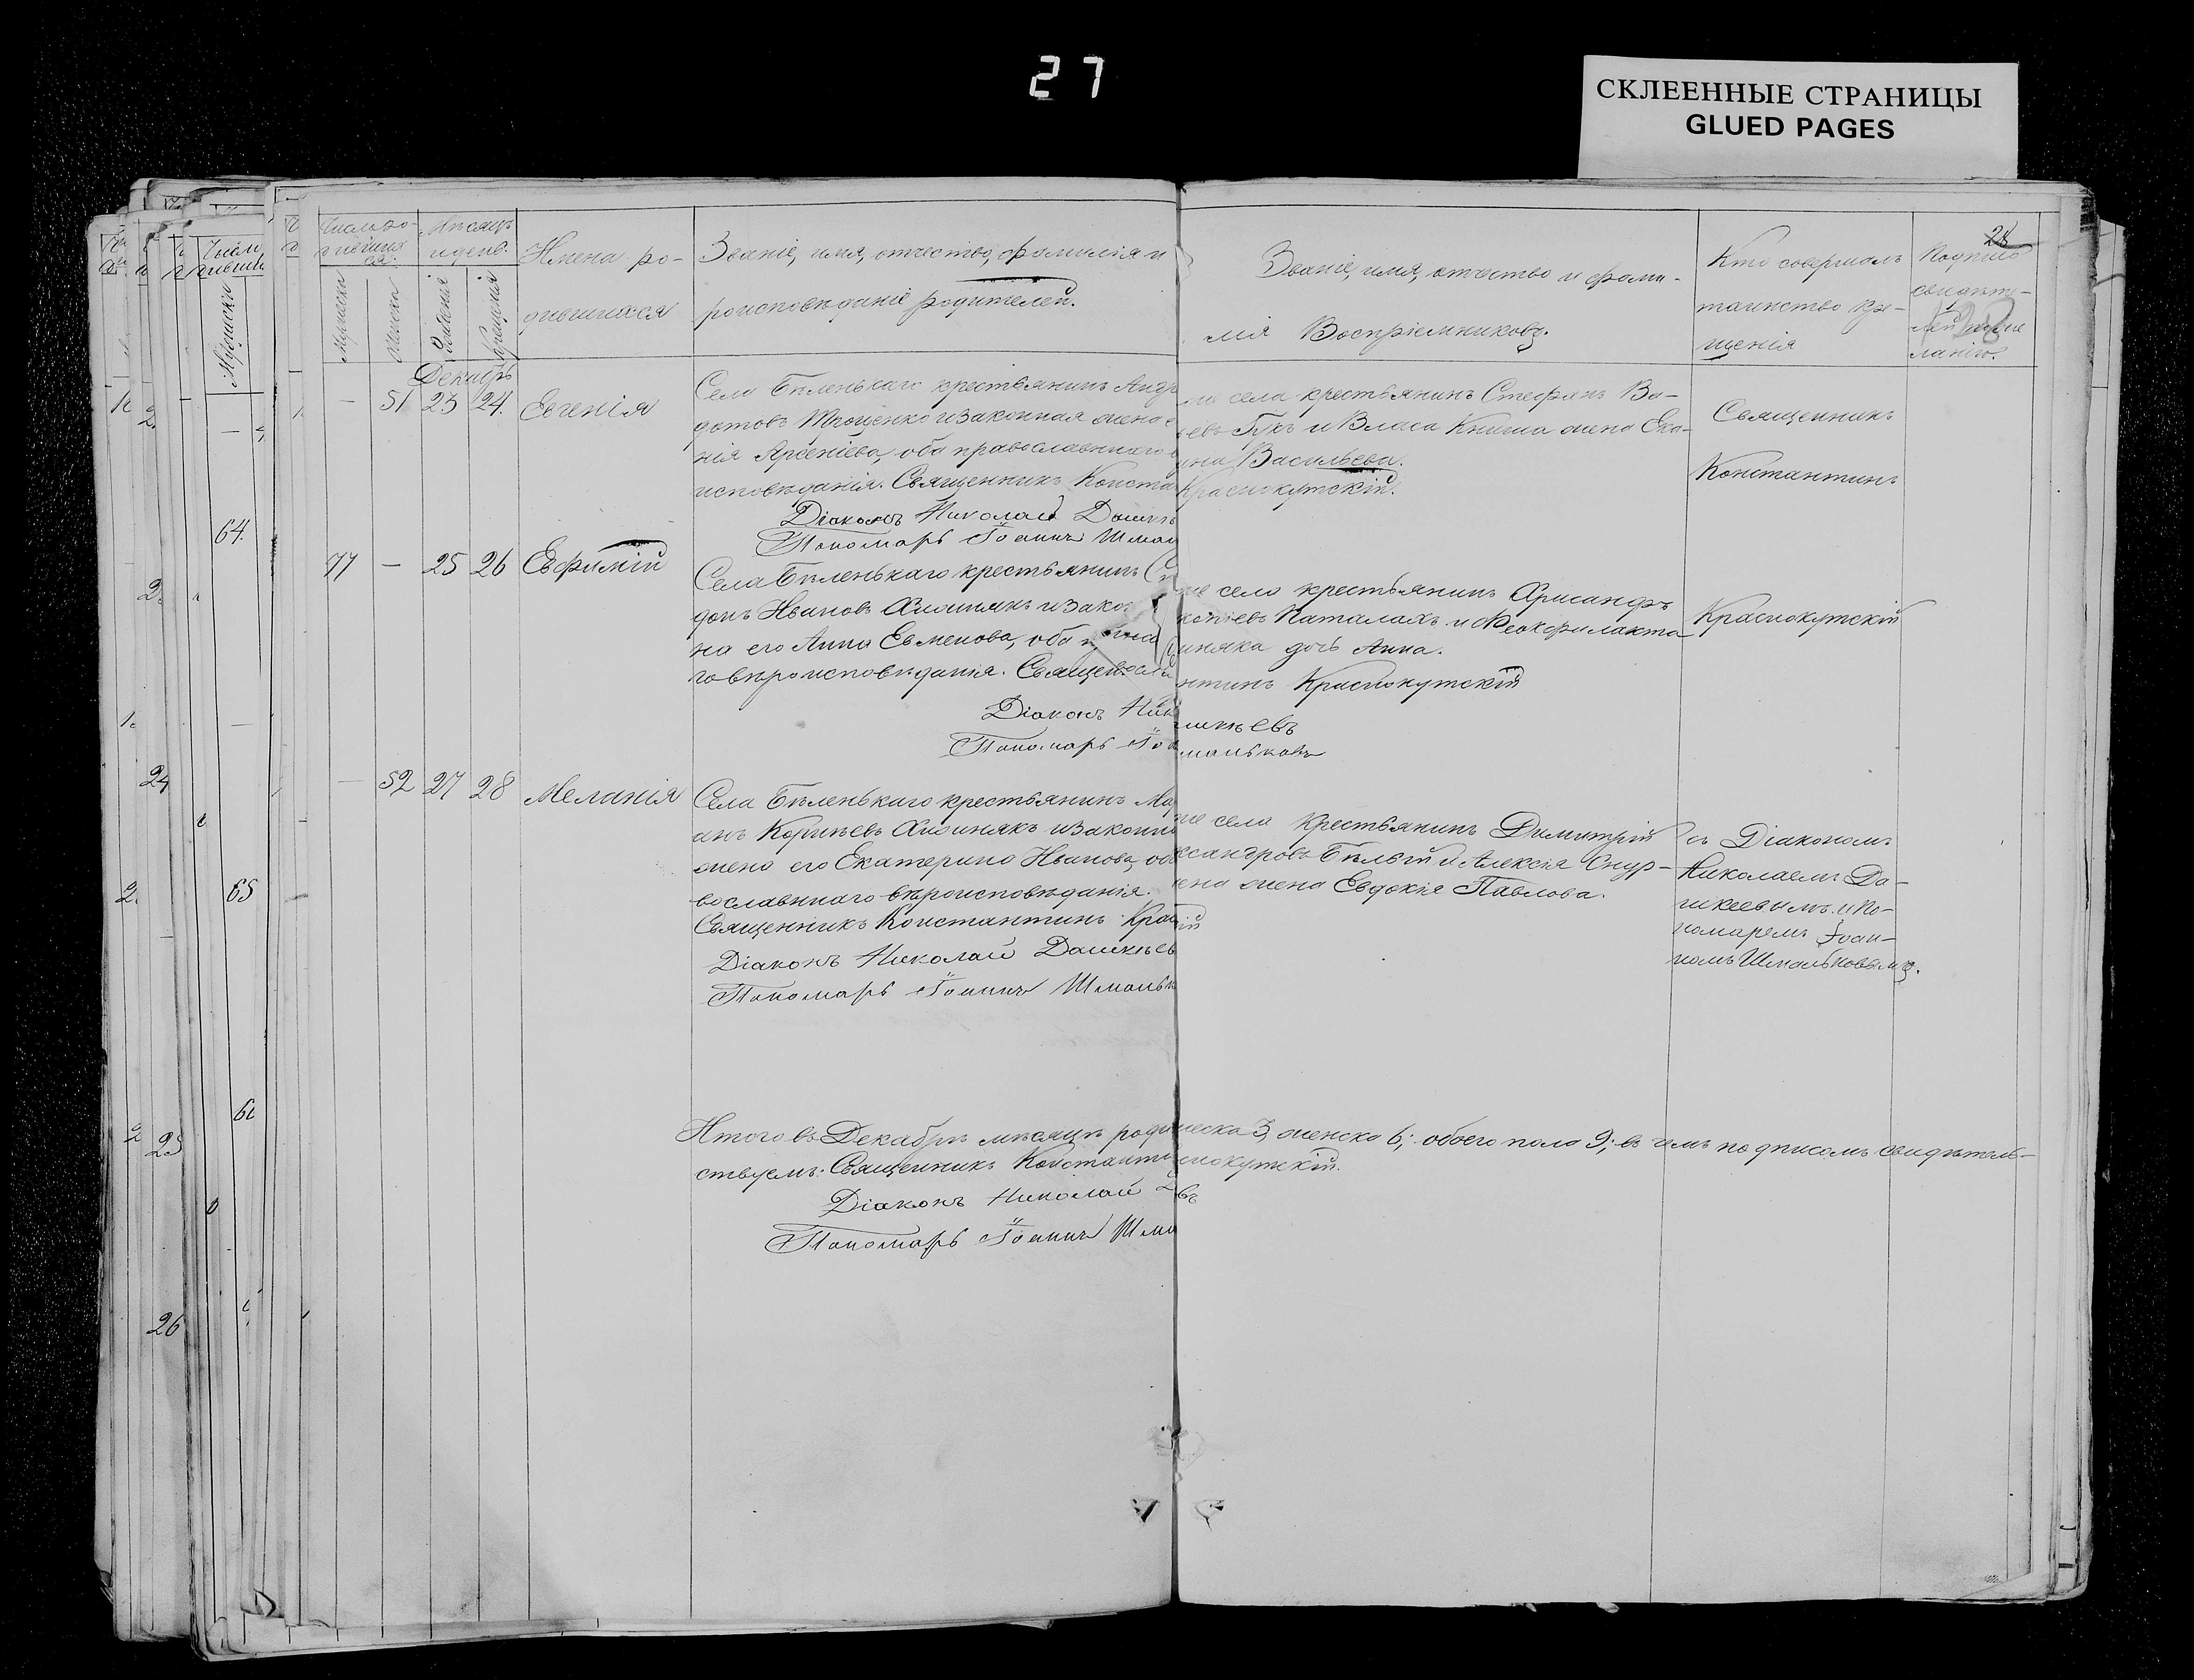 27
СКЛЕЕННЫЕ СТРАНИЦЫ
GLUED PAGES
28
Число ро-
Мѣсяцъ
и день.
Имена ро-
дившихся
Званіе, имя, отчество, фамилія и
роисповѣданіе родителей.
Званіе, имя, отчество и фами-
лія Воспріемниковъ.
Кто совершалъ
таинство кре-
щенія
Подпись
свидѣте-
лей
ланію.
Мужески
Женски
Рожденія
Крещенія
Декабрь
— 51 23 24. Евгенія
Села Бѣленькаго крестьянинъ Андр
дотовъ Трощенко и законная жена е
нія Арсеніева, оба православнаго в
исповѣданія. Священникъ Конста
Діаконъ Николай Дашкѣ
Пономарь Іоаннъ Шмал
же села крестьянинъ Стефанъ Ва-
ьевъ Гукъ и Власа Книша жена Ека-
ина Васильева.
Краснокутскій.
Священникъ
Константинъ
77 — 25 26 Евфимій
Села Бѣленькаго крестьянинъ Сп
донъ Ивановъ Хижнякъ и зако
на его Анна Евменова, оба
го вѣроисповѣданія. Священ
Діаконъ Ник
Пономарь Іоа
же села крестьянинъ Арисандръ
копіевъ Паталахъ и Феофилакта
иняка дочь Анна.
нтинъ Краснокутскій
шкѣевъ
маньковъ
Краснокутскій
— 52 27 28 Меланія
Села Бѣленькаго крестьянинъ Ма
анъ Корнѣевъ Хижнякъ и законн
жена его Екатерина Иванова, об
вославнаго вѣроисповѣданія.
Священникъ Константинъ Кра
Діаконъ Николай Дашкѣев
Пономарь Іоаннъ Шмальк
же села крестьянинъ Димитрій
ксандровъ Бѣлый и Алексѣя Снур-
жена Евдокія Павлова.
съ Діакономъ
Николаемъ Да-
шкеевымъ и По-
номаремъ Іоан-
номъ Шмальковымъ.
Итого въ Декабрѣ мѣсяцѣ роди
ческа 3, женска 6; обоего пола 9; въ чемъ подписомъ свидѣтель-
ствуемъ: Священникъ Константи
снокутскій.
Діаконъ Николай
въ
Пономарь Іоаннъ Шма
64
65
24
25
26